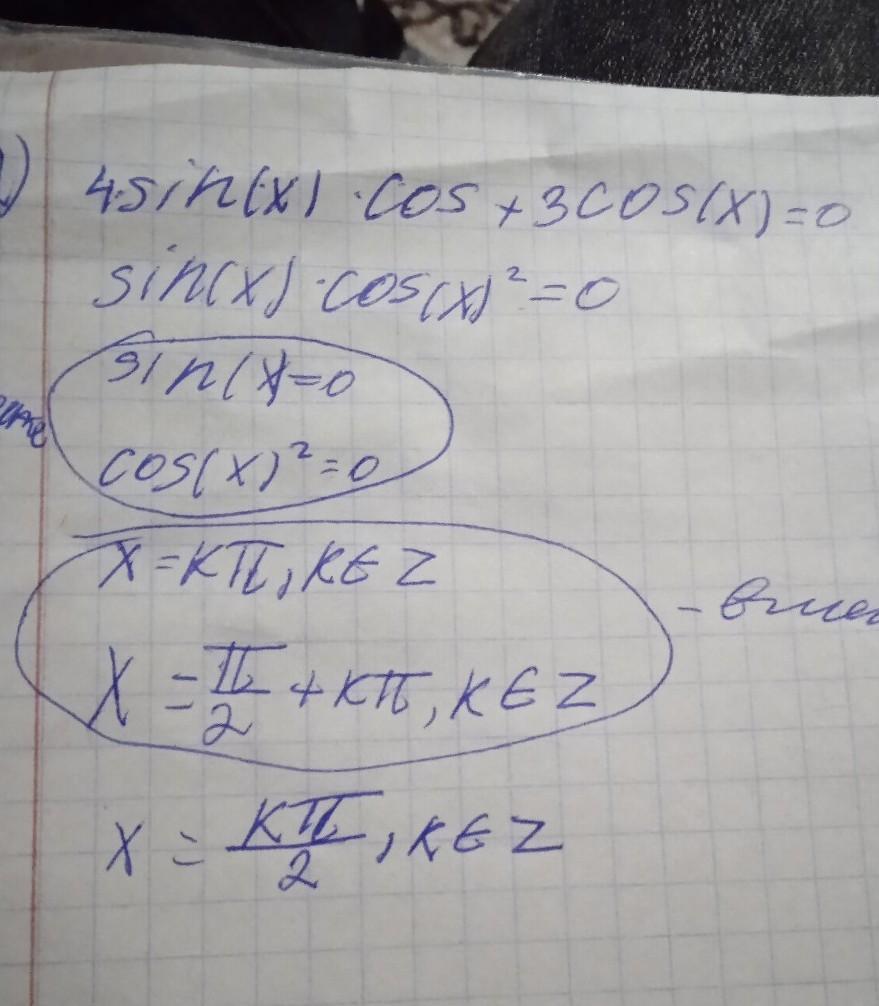 4·sin(x) · cos + 3cos(x) = 0
sin(x) · cos(x)² = 0
sin(x)=0
cos(x)² = 0
x = kπ, k ∈ Z
x = π/2 + kπ, k ∈ Z
x = kπ/2, k ∈ Z